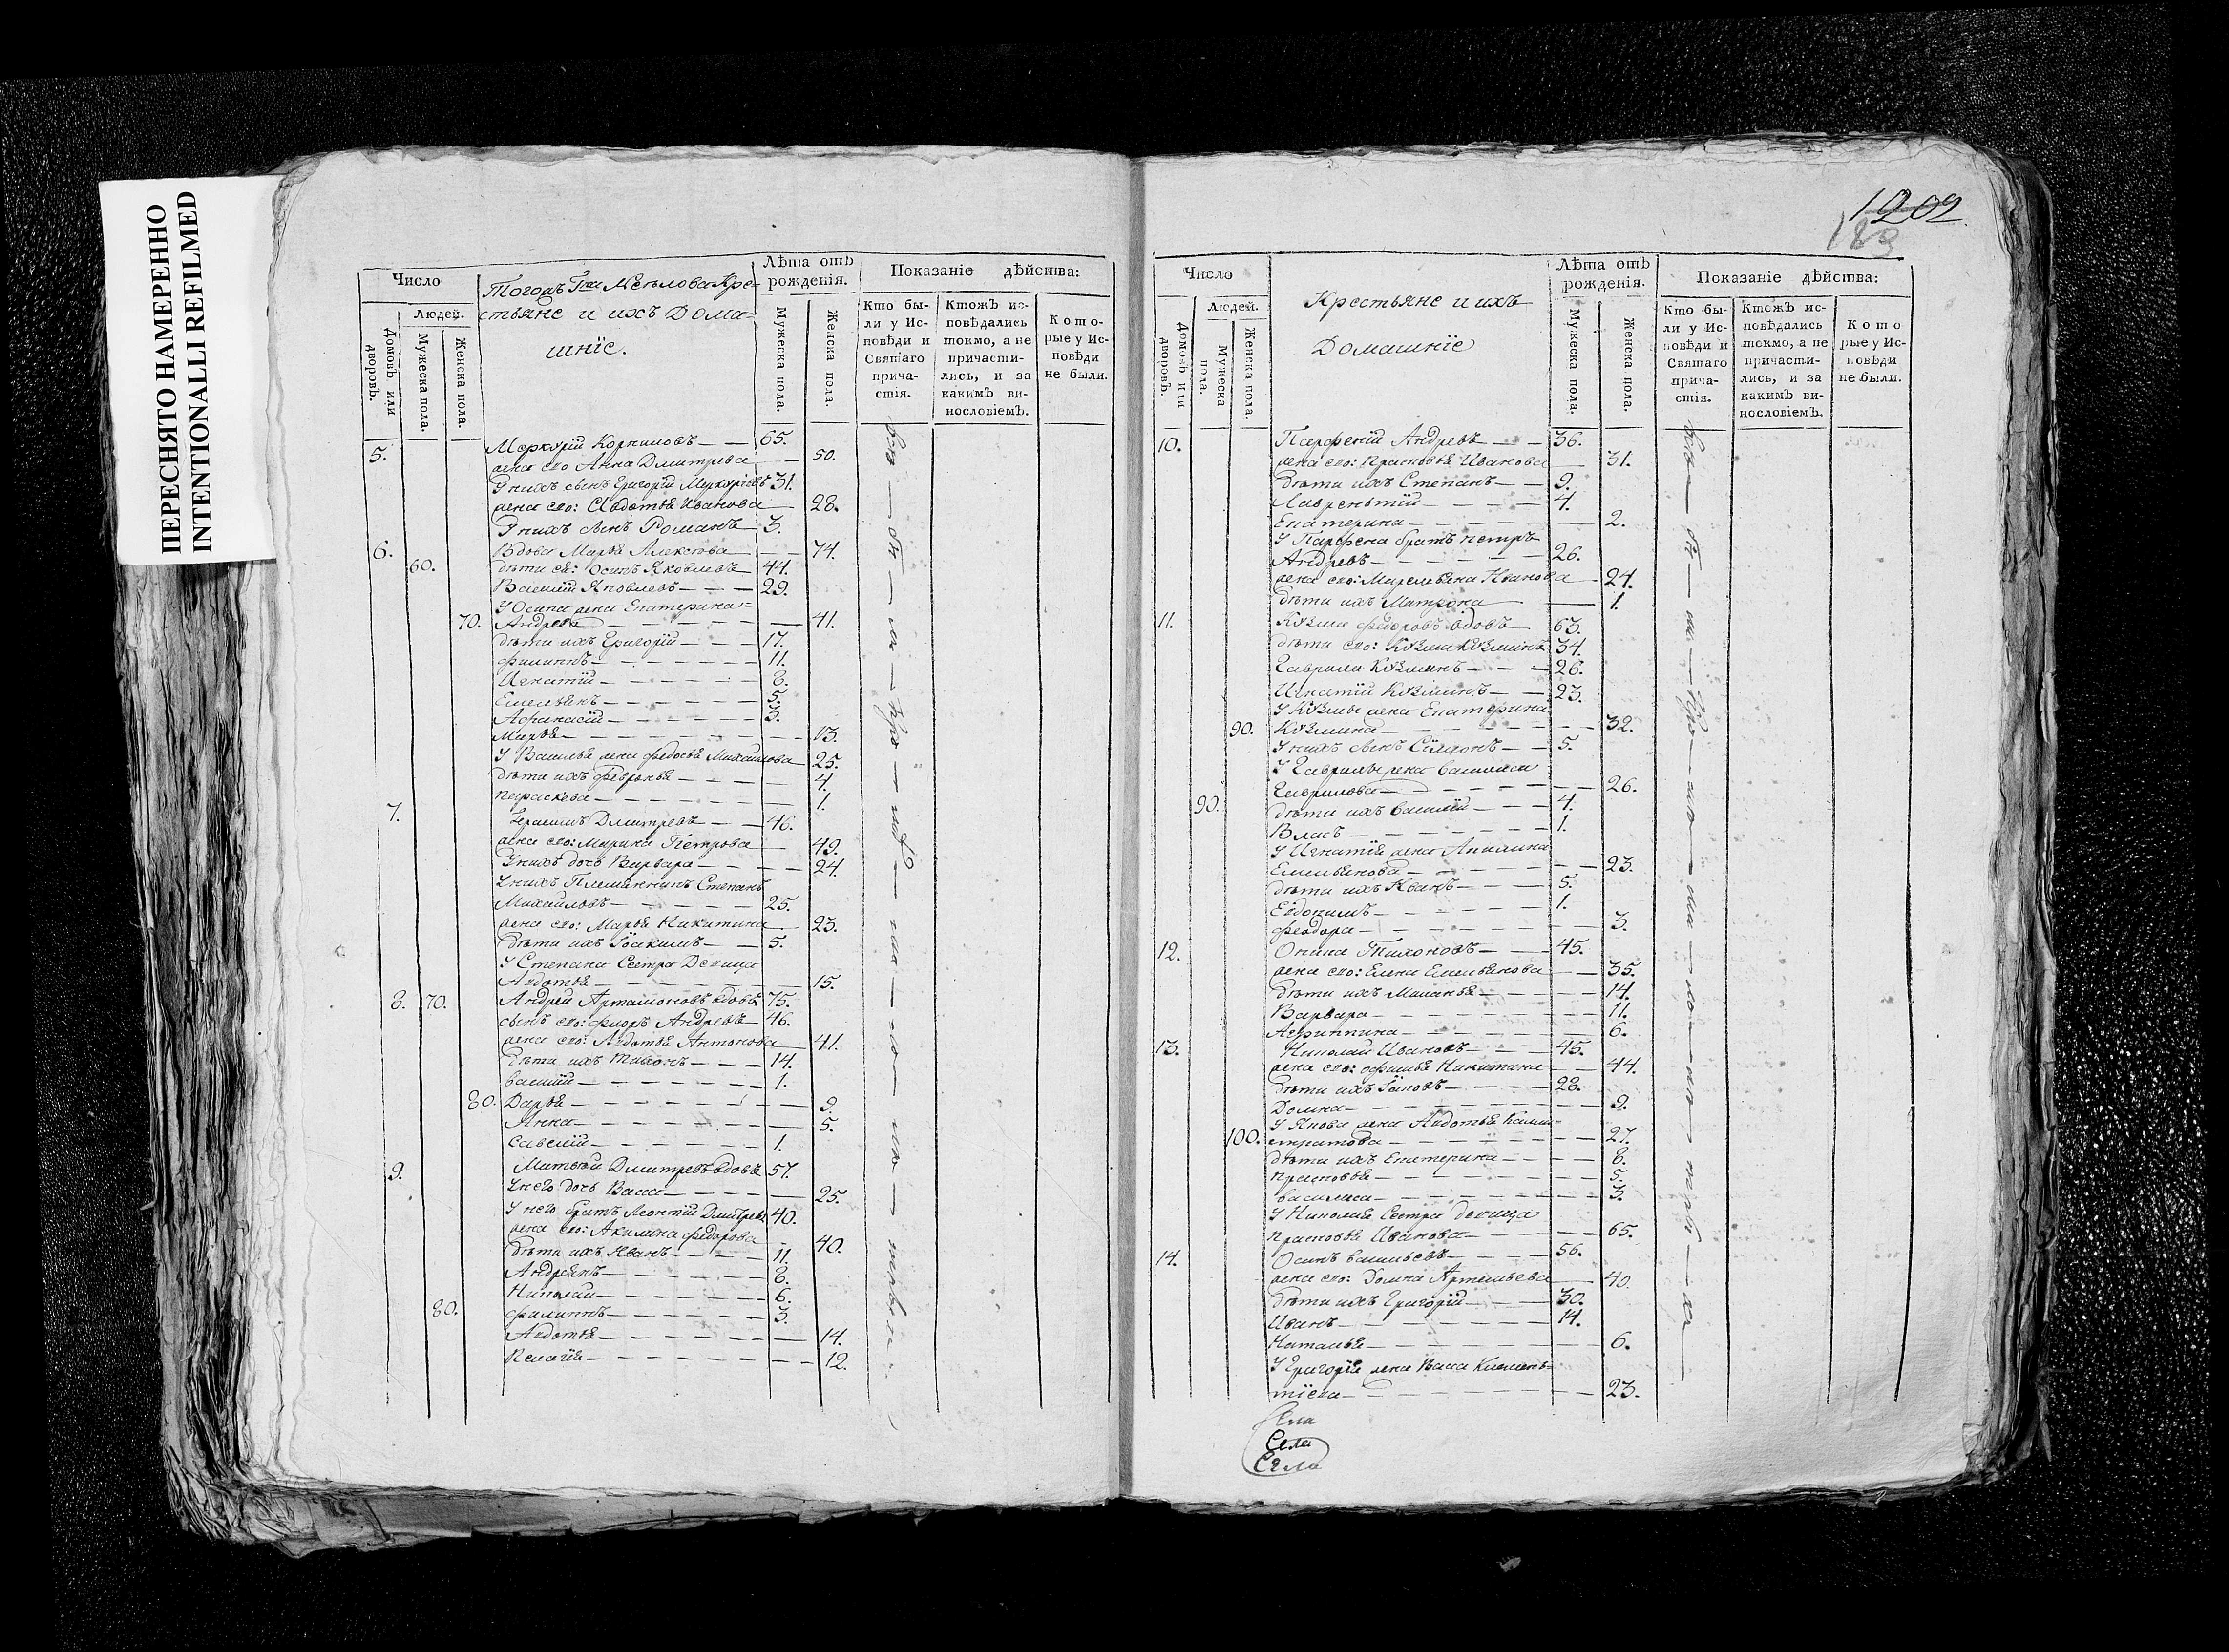 ПЕРЕСНЯТО НАМЕРЕННО
INTENTIONALLI REFILMED
Число
Людей.
Домовъ или дворовъ.
Мужеска пола.
Женска пола.
Тогожъ Гна Кре-
стьяне и ихъ Дома-
шнїе.
Лѣта отъ рожденія.
Мужеска пола.
Женска пола.
Показаніе дѣйства:
Кто бы-
ли у Ис-
повѣди и
Святаго
прича-
стія.
Ктожъ ис-
повѣдались
токмо, а не
причасти-
лись, и за
какимъ ви-
нословіемъ.
Кото-
рые у Ис-
повѣди
не были.
Меркурїй Корниловъ 65.
5. жена его Анна Дмитрева 50.
У нихъ сынъ Григорїй Меркурїевъ 31.
жена его: Авдотья Иванова 28.
У нихъ сынъ Романъ 3.
6. Вдова Марья Алексѣева 74.
60. дѣти ея: Осипъ Яковлевъ 44.
Василїй Яковлевъ 29.
У Осипа жена Екатерина
70. Андрева 41.
дѣти ихъ Григорїй 17.
филиппъ 11.
Игнатїй 8.
Емельянъ 5.
Афанасїй 3.
Марья 13.
У Василья жена федосья Михайлова 25.
дѣти ихъ Февронья 4.
параскева 1.
7. Герасимъ Дмитревъ 46.
жена его: Марина Петрова 49.
У нихъ дочь Варвара 24.
У нихъ Племянникъ Степанъ
Михайловъ 25.
жена его: Марья Никитина 23.
дѣти ихъ Іоакимъ 5.
У Степана Сестра Девица
Авдотья 15.
8. 70. Андрей Артамоновъ вдовъ 75.
сынъ его: флоръ Андревъ 46.
жена его: Авдотья Антонова 41.
дѣти ихъ 14.
василїй 1.
80. Дарья 9.
Анна 5.
Савелїй 1.
9. Матвѣй Дмитревъ вдовъ 57.
У него дочь Васса 25.
У него братъ Леонтїй Дмитревъ 40.
жена его: Акилина федорова 40.
дѣти ихъ Иванъ 11.
Андреянъ 8.
Николай 6.
80. филиппъ 3.
Авдотья 14.
Пелагїя 12.
1202
183
Число
Людей.
Домовъ или дворовъ.
Мужеска пола.
Женска пола.
Крестьяне и ихъ
Домашнїе
Лѣта отъ рожденія.
Мужеска пола.
Женска пола.
Показаніе дѣйства:
Кто бы-
ли у Ис-
повѣди и
Святаго
прича-
стія.
Ктожъ ис-
повѣдались
токмо, а не
причасти-
лись, и за
какимъ ви-
нословіемъ.
Кото-
рые у Ис-
повѣди
не были.
10. Парфенїй Андревъ 36.
жена его: Прасковья Иванова 31.
дѣти ихъ Степанъ 9.
Лаврентїй 4.
Екатерина 2.
У Парфена братъ петръ
Андревъ 26.
жена его: Иванова 24.
дѣти ихъ Матрона 1.
11. Козма федоровъ вдовъ 63.
дѣти его: Козма Козминъ 34.
Гаврила Козминъ 26.
Игнатїй Козминъ 23.
У Козмы жена Екатерина
90. Козмина 32.
У нихъ сынъ Сїмеонъ 5.
У Гаврилы жена василиса
Гаврилова 26.
90. дѣти ихъ василїй 4.
Власъ 1.
У Игнатїя жена Акилина
Емельянова 23.
дѣти ихъ Иванъ 5.
Евдокимъ 1.
феодора 3.
12. Тихоновъ 45.
жена его: Елена Емельянова 35.
дѣти ихъ Маланья 14.
Варвара 11.
Агриппина 6.
13. Николай Ивановъ 45.
жена его: офимья Никитина 44.
дѣти ихъ Іаковъ 28.
Домна 9.
У Якова жена Авдотья Кали-
100. стратова 27.
дѣти ихъ Екатерина 8.
прасковья 5.
василиса 3.
У Николая Сестра девица
прасковья Иванова 65.
14. Осипъ васильевъ 56.
жена его: Домна Артемьева 40.
дѣти ихъ Григорїй 30.
Иванъ 14.
Наталья 6.
У Григорїя жена Васа Клемень-
тїева 23.
Села
Села
Села